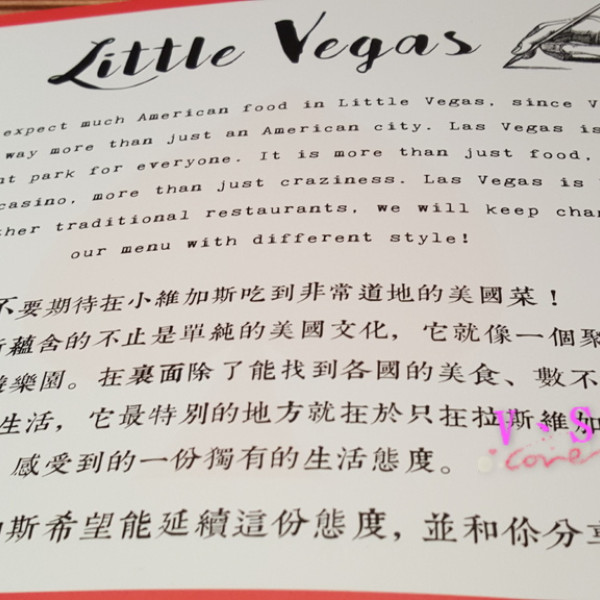 Little Vegas
expect much American food in Little Vegas, since V
way more than just an American city. Las Vegas is
nt park for everyone. It is more than just food,
casino, more than just craziness. Las Vegas is
ther traditional restaurants, we will keep chan
our menu with different style!
不要期待在小維加斯吃到非常道地的美國菜！
蘊含的不止是單純的美國文化，它就像一個聚
樂園。在裏面除了能找到各國的美食、數不
生活，它最特別的地方就在於只在拉斯維加
感受到的一份獨有的生活態度。
斯希望能延續這份態度，並和你分享
V.S
cover